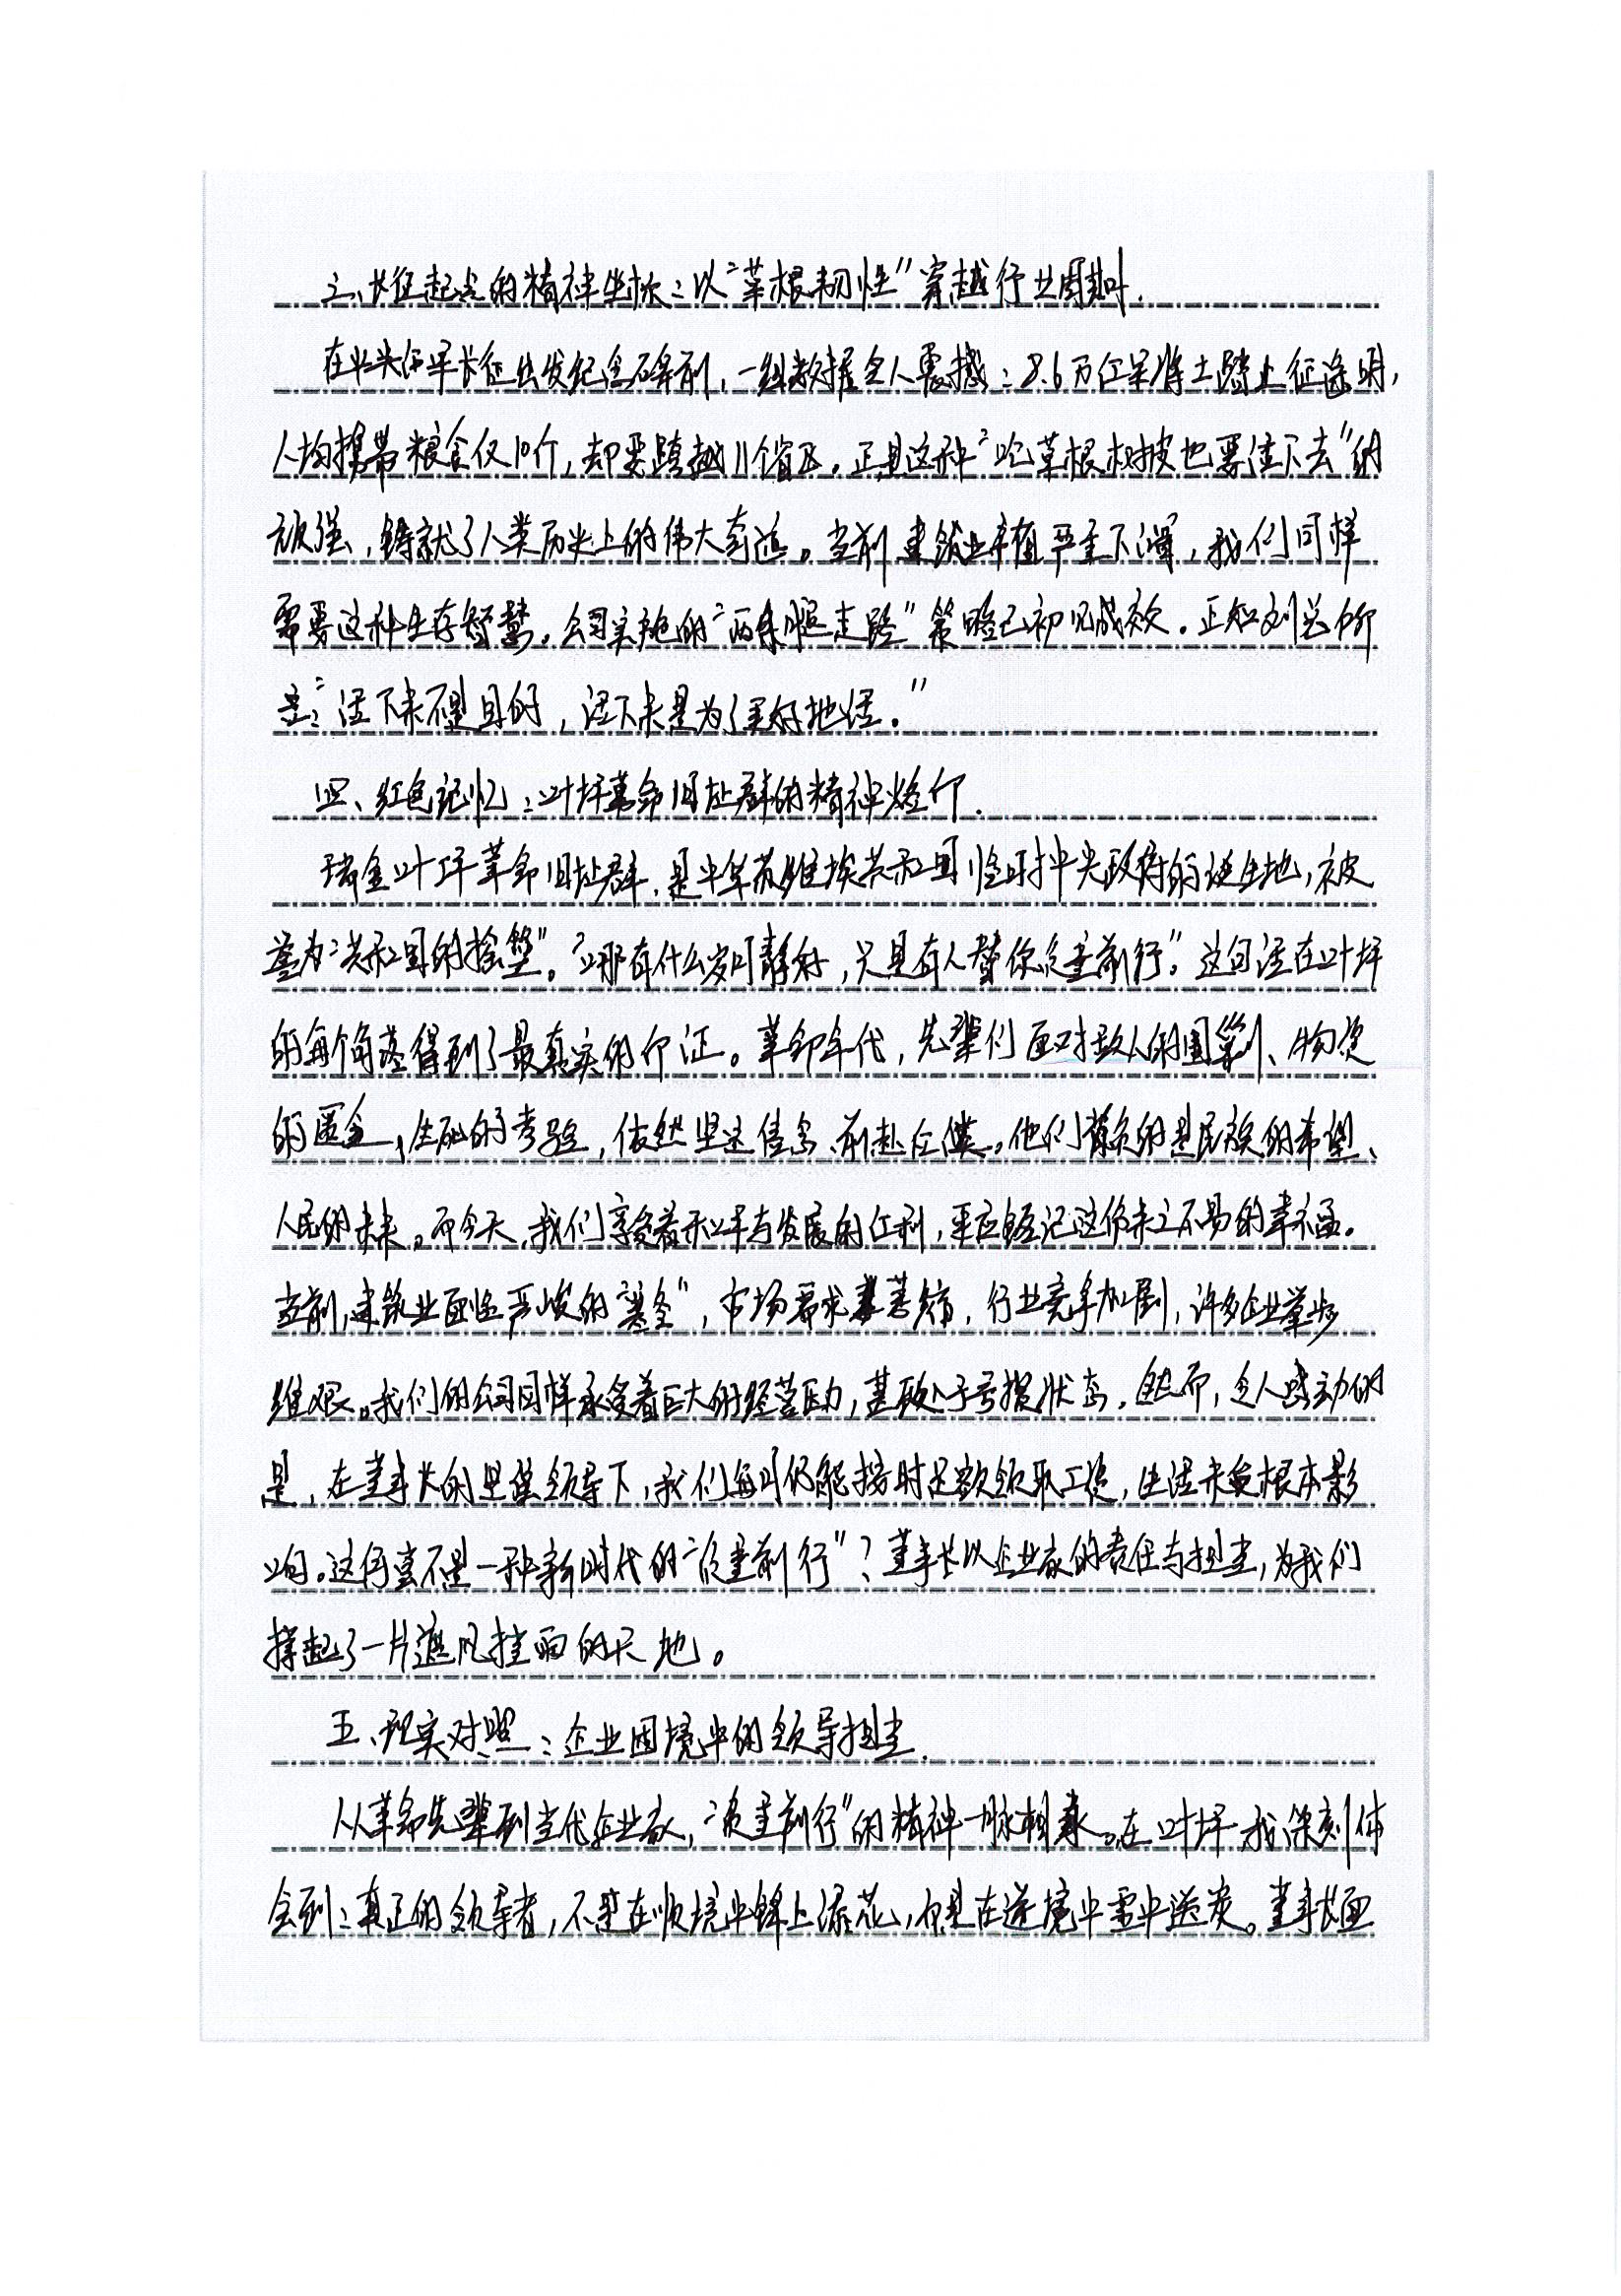 三、长征起点的精神坐标：以“草根韧性”穿越行业周期.
在中央红军长征出发纪念碑前，一组数据令人震撼：8.6万红军将士踏上征途时，
人均携带粮食仅10斤，却要跨越11个省区。正是这种“吃草根树皮也要活下去”的
顽强，铸就了人类历史上的伟大奇迹。当前建筑业产值严重下滑，我们同样
需要这种生存智慧。公司实施的“两条腿走路”策略已初见成效。正如刘总所
言：“活下来不是目的，活下来是为了更好地活。”
四、红色记忆：叶坪革命旧址群的精神烙印.
瑞金叶坪革命旧址群，是中华苏维埃共和国临时中央政府的诞生地，被
誉为“共和国的摇篮”。“哪有什么岁月静好，只是有人替你负重前行”。这句话在叶坪
的每个角落得到了最真实的印证。革命年代，先辈们面对敌人的围剿、物资
的匮乏、生死的考验，依然坚定信念、前赴后继。他们肩负的是民族的希望、
人民的未来。而今天，我们享受着和平与发展的红利，更应铭记这份来之不易的幸福。
当前，建筑业面临严峻的“寒冬”，市场需求萎缩，行业竞争加剧，许多企业举步
维艰。我们的公司同样承受着巨大的经营压力，甚至处于亏损状态。然而，令人感动的
是，在董事长的坚强领导下，我们每月仍能按时足额领取工资，生活未受根本影
响。这何尝不是一种新时代的“负重前行”？董事长以企业家的责任与担当，为我们
撑起了一片遮风挡雨的天地。
五、现实对照：企业困境中的领导担当.
从革命先辈到当代企业家，“负重前行”的精神一脉相承。在叶坪，我深刻体
会到：真正的领导者，不是在顺境中锦上添花，而是在逆境中雪中送炭。董事长面